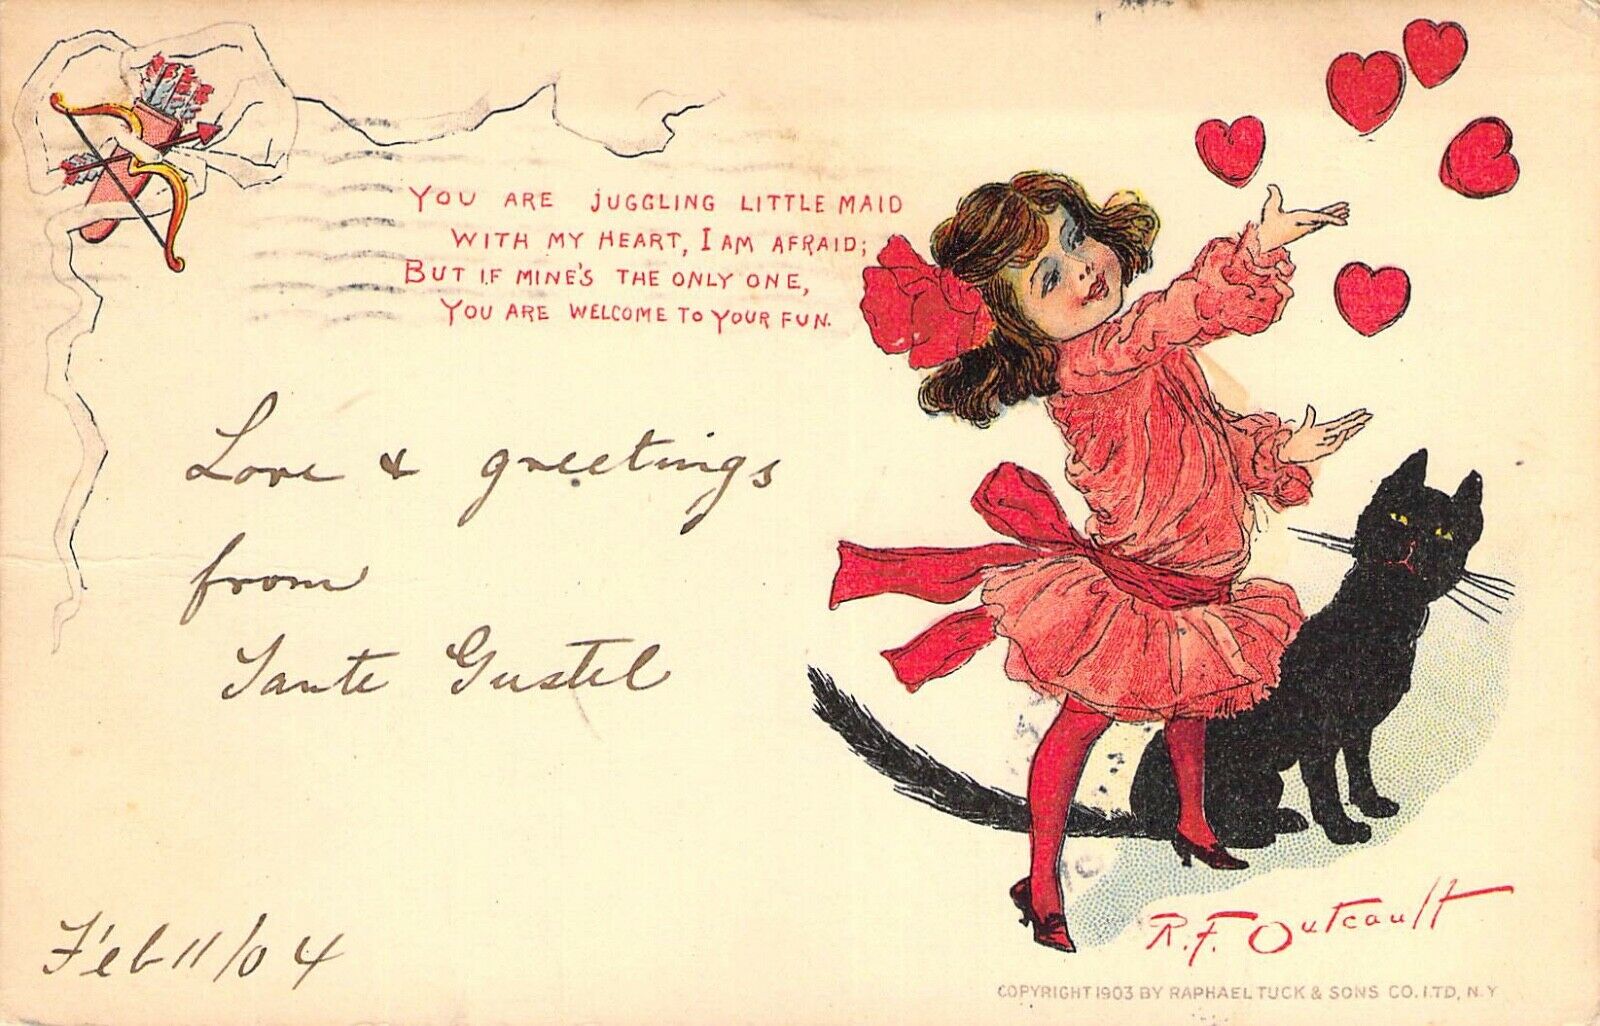 YOU ARE JUGGLING LITTLE MAID
WITH MY HEART, I AM AFRAID;
BUT IF MINE'S THE ONLY ONE,
YOU ARE WELCOME TO YOUR FUN.
Love & greetings
from
Tante Gustel
Feb 11/04
R. F. Outcault
COPYRIGHT 1903 BY RAPHAEL TUCK & SONS CO. LTD, N.Y